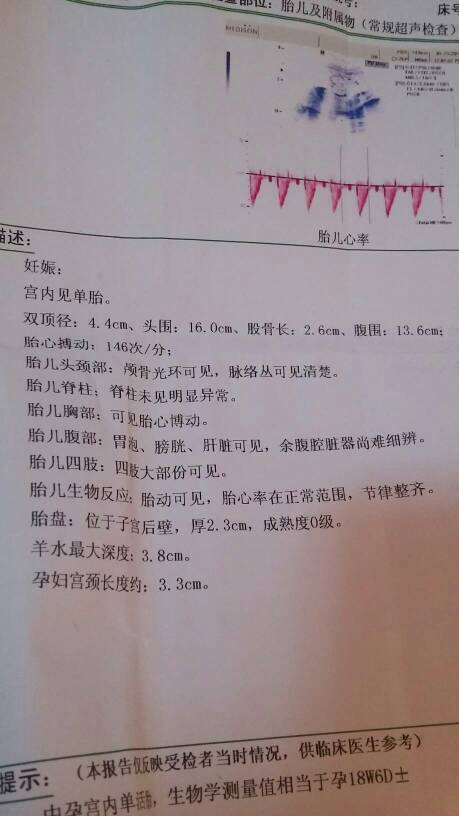 查部位：胎儿及附属物（常规超声检查）
床号
MEDISON
胎儿心率
描述：
妊娠：
宫内见单胎。
双顶径：4.4cm、头围：16.0cm、股骨长：2.6cm、腹围：13.6cm；
胎心搏动：146次/分；
胎儿头颈部：颅骨光环可见，脉络丛可见清楚。
胎儿脊柱：脊柱未见明显异常。
胎儿胸部：可见胎心博动。
胎儿腹部：胃泡、膀胱、肝脏可见，余腹腔脏器尚难细辨。
胎儿四肢：四肢大部份可见。
胎儿生物反应：胎动可见，胎心率在正常范围，节律整齐。
胎盘：位于子宫后壁，厚2.3cm，成熟度0级。
羊水最大深度：3.8cm。
孕妇宫颈长度约：3.3cm。
提示：（本报告仅映受检者当时情况，供临床医生参考）
中孕宫内单活胎，生物学测量值相当于孕18W6D±